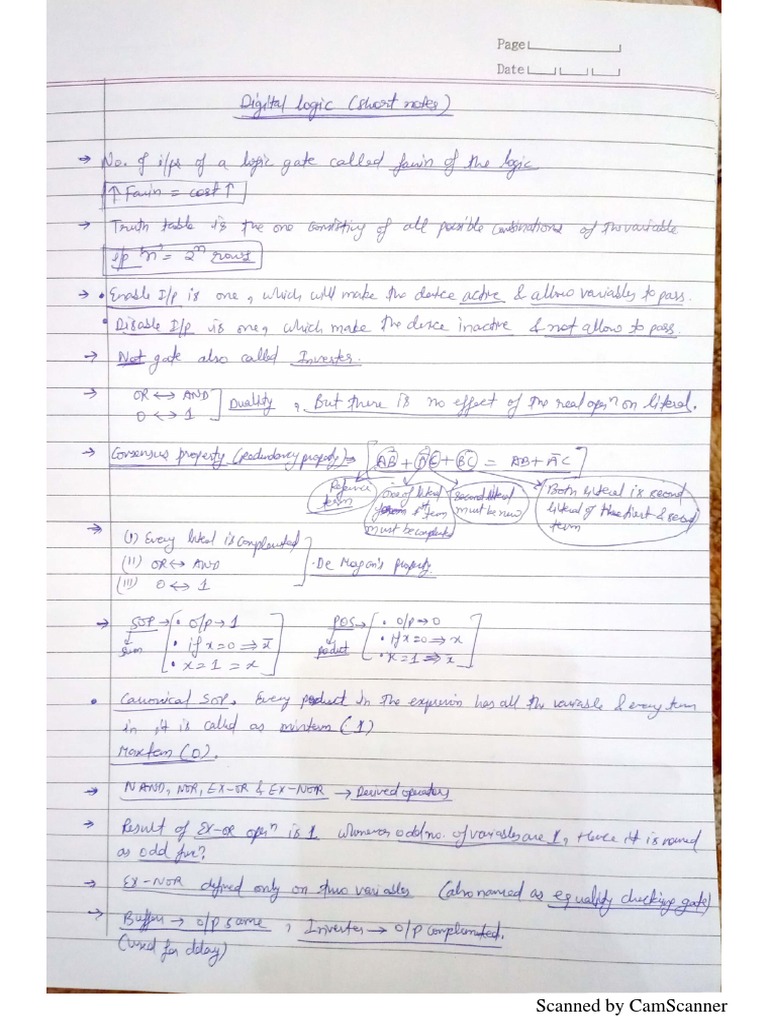 Page
Date
Digital logic (short notes)
→ No. of i/ps of a logic gate called fanin of the logic
↑ Fanin = cost ↑
→ Truth table is the one consisting of all possible combinations of the variable
i/p 'n' = 2ⁿ rows
→ • Enable I/p is one, which will make the device active & allow variables to pass.
• Disable I/p is one, which make the device inactive & not allow to pass.
→ Not gate also called Inverter.
→ OR ↔ AND
0 ↔ 1 ] Duality, But there is no effect of the real operⁿ on literal.
→ Consensus property (redundancy property) → [AB + A̅C + BC = AB + A̅C]
Reference term
one of literal from 1st term must be complemented
second literal must be new
Both literal is second literal of the first & second term
→ (i) Every literal is complemented
(ii) OR ↔ AND
(iii) 0 ↔ 1
De Mogan's property.
→ SOP → [• o/p → 1 POS → [• o/p → 0
sum • if x=0 ⇒ x̅ product • if x=0 ⇒ x
• x=1 = x • x=1 ⇒ x̅
• Canonical SOP. Every product in the expression has all the variable & every term
in, it is called as minterm (1)
Maxterm (0).
→ NAND, NOR, EX-OR & EX-NOR → Derived operators
→ Result of EX-OR operⁿ is 1 whenever odd no. of variables are 1, Hence it is named
as odd funⁿ
→ EX-NOR defined only on two variables (also named as equality checking gate)
→ Buffer → o/p same, Inverter → o/p complemented.
(used for delay)
Scanned by CamScanner